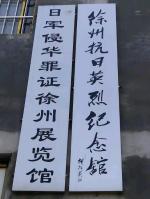 徐州抗日英烈纪念馆
日军侵华罪证徐州展览馆